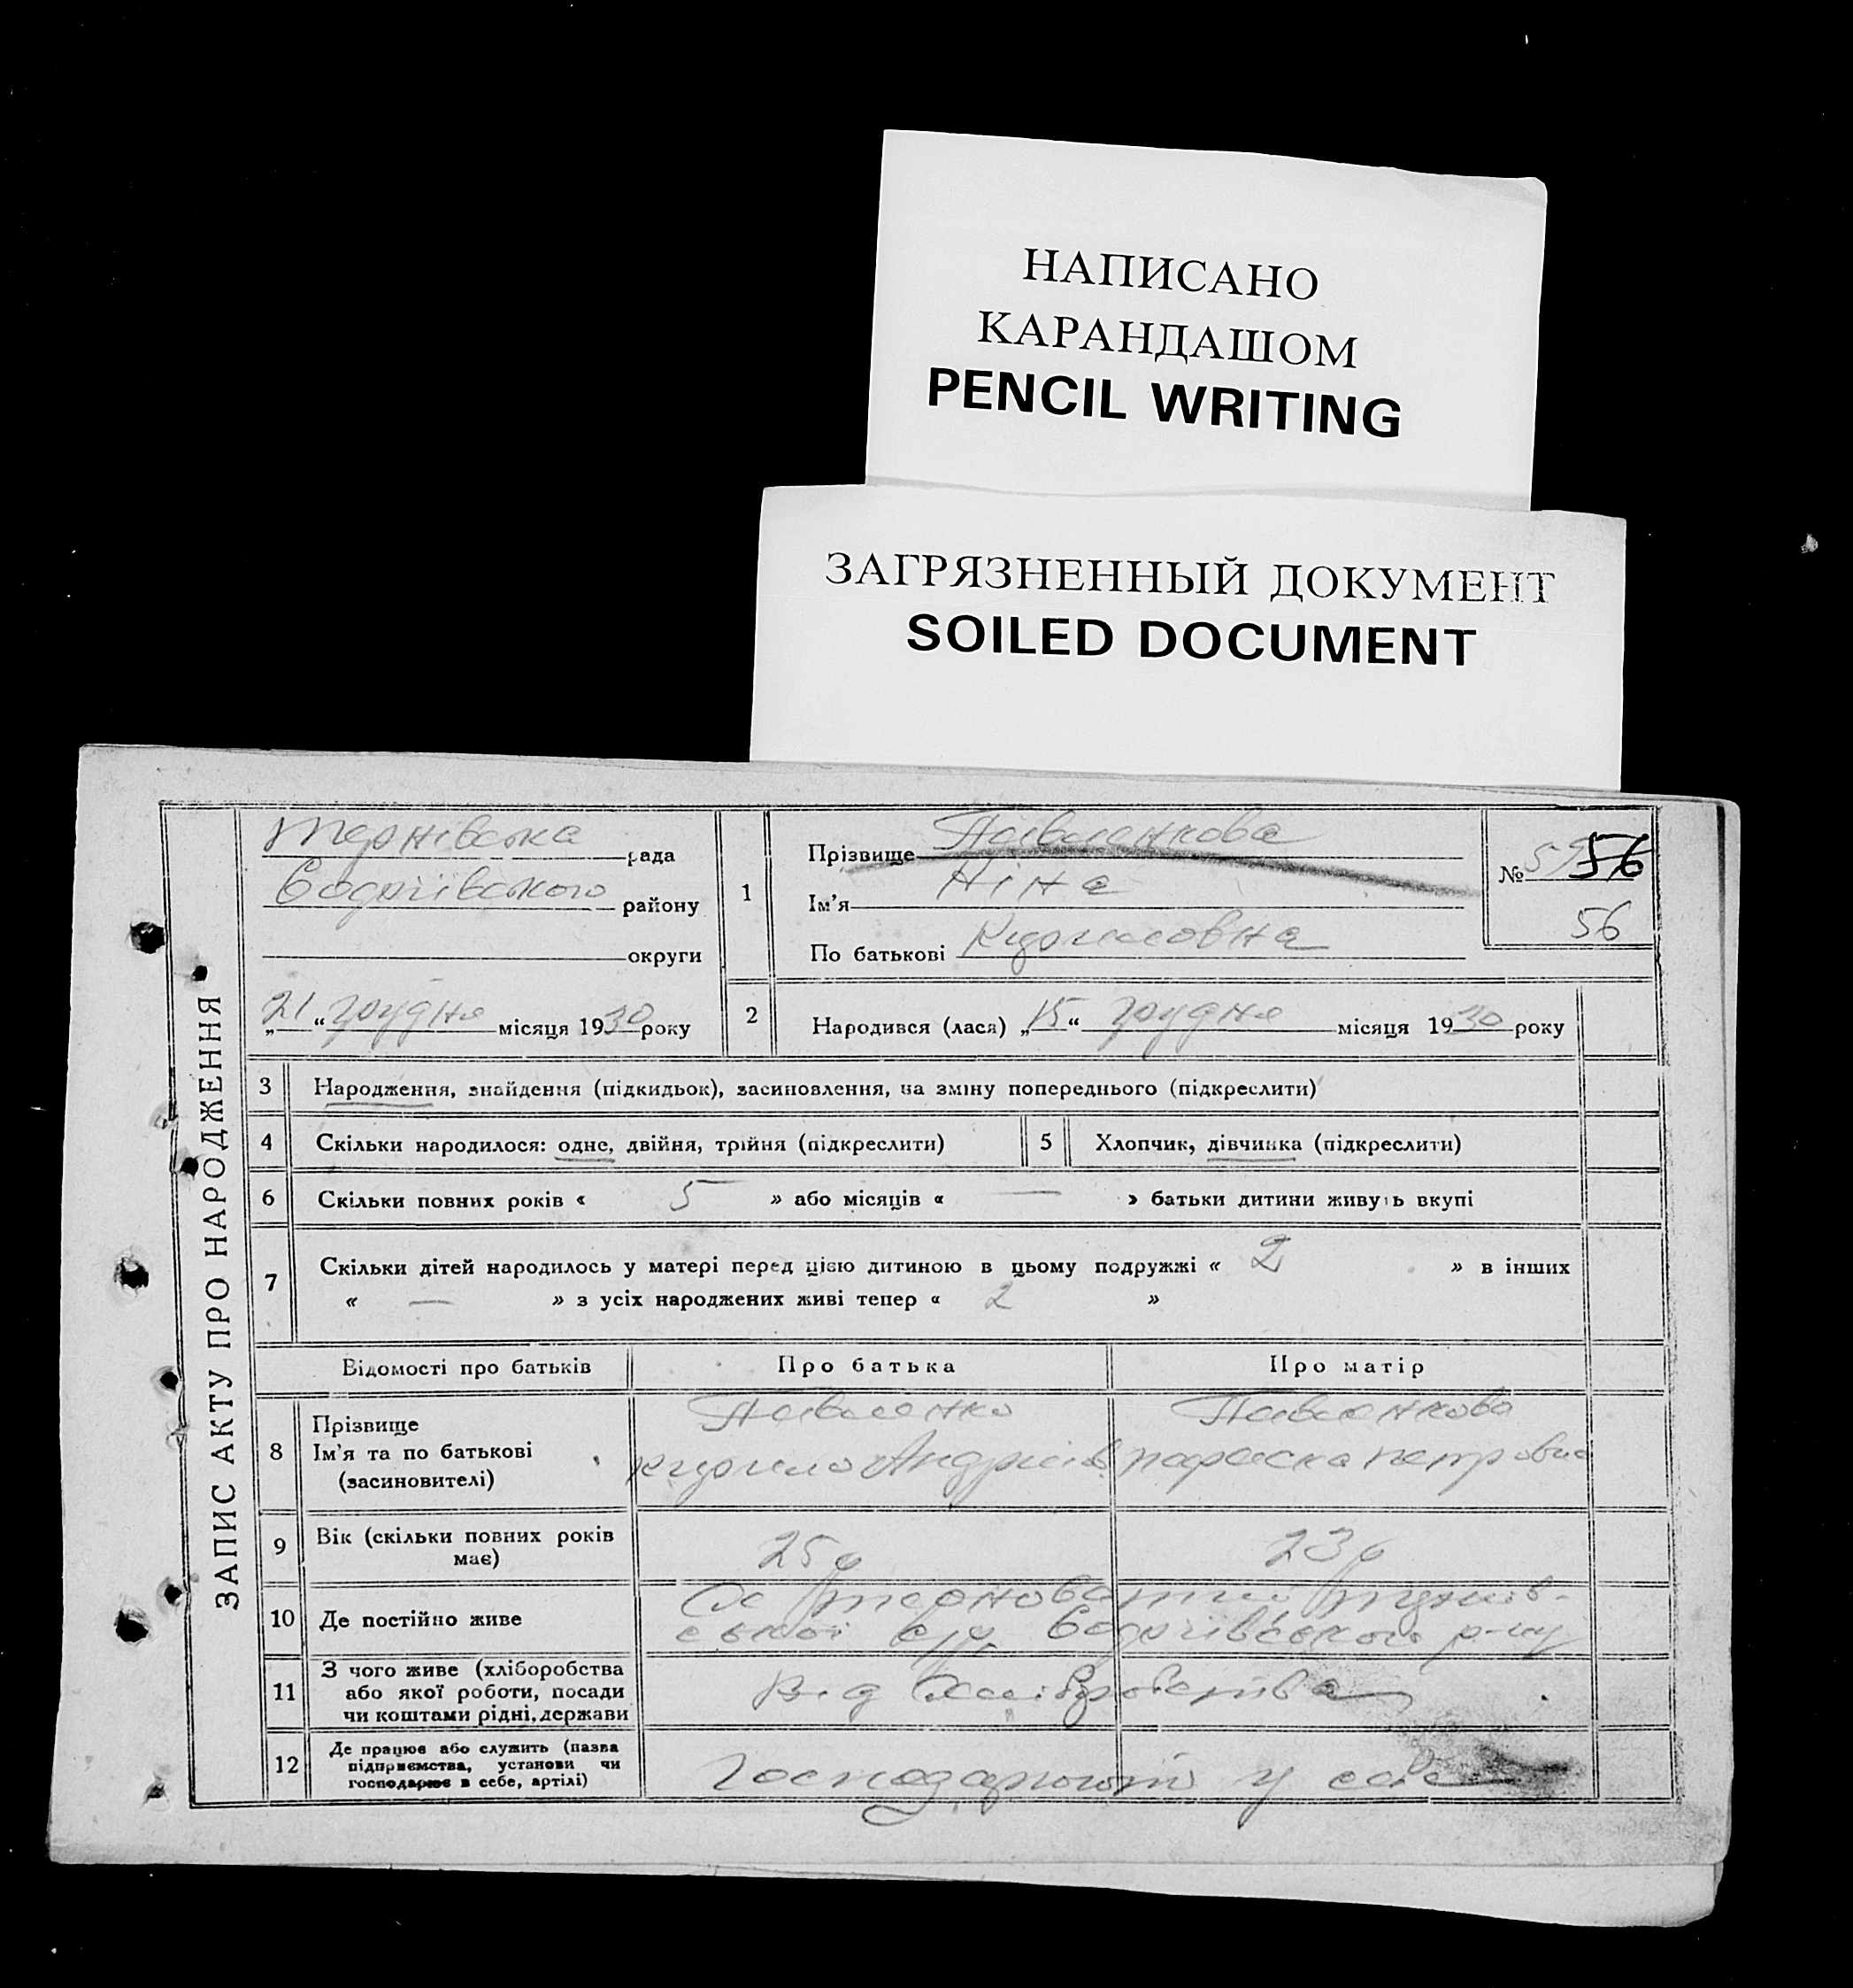 НАПИСАНО
КАРАНДАШОМ
PENCIL WRITING
ЗАГРЯЗНЕННЫЙ ДОКУМЕНТ
SOILED DOCUMENT
ЗАПИС АКТУ ПРО НАРОДЖЕННЯ
Тернівська рада
району
округи
„21“ грудня місяця 1930 року
1
Прізвище Павленкова
Ім'я Ніна
По батькові Кириловна
№ 56
56
2
Народився (лася) „15“ грудня місяця 1930 року
3 Народження, знайдення (підкидьок), засиновлення, на зміну попереднього (підкреслити)
4 Скільки народилося: одне, двійня, трійня (підкреслити) 5 Хлопчик, дівчинка (підкреслити)
6 Скільки повних років « 5 » або місяців « — » батьки дитини живуть вкупі
7 Скільки дітей народилось у матері перед цією дитиною в цьому подружжі « 2 » в інших
« — » з усіх народжених живі тепер « 2 »
Відомості про батьків Про батька Про матір
8 Прізвище Павленко Павленкова
Ім'я та по батькові Кирило Андріїв Параска Петровна
(засиновителі)
9 Вік (скільки повних років має) 25 р 23 р
10 Де постійно живе
р-ну
11 З чого живе (хліборобства
або якої роботи, посади
чи коштами рідні, держави
Від хліборобства
12 Де працює або служить (назва
підприємства, установи чи
господарює в себе, артілі)
Господарюють у себе